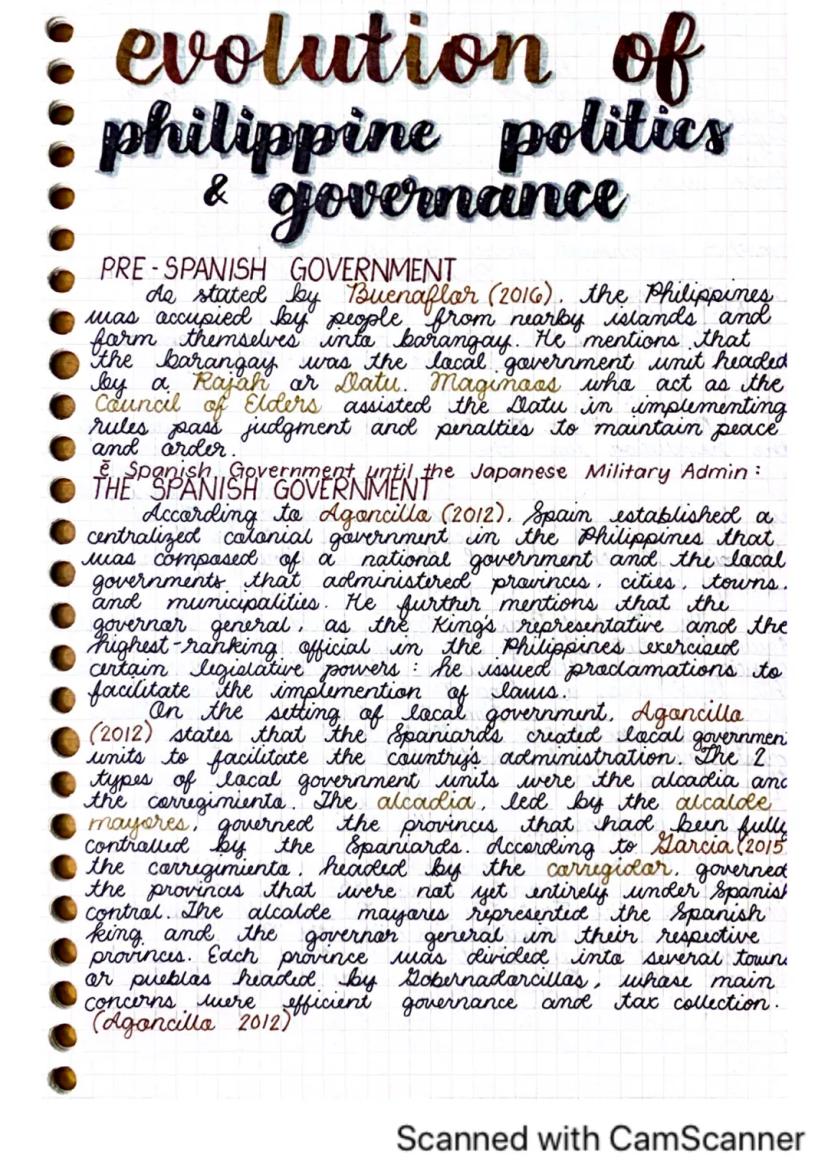 evolution of
philippine politics
& governance
PRE-SPANISH GOVERNMENT
As stated by Buenaflor (2016), the Philippines
was occupied by people from nearby islands and
form themselves into barangay. He mentions that
the barangay was the local government unit headed
by a Rajah or Datu. Maginoos who act as the
Council of Elders assisted the Datu in implementing
rules pass judgment and penalties to maintain peace
and order.
Spanish Government until the Japanese Military Admin:
THE SPANISH GOVERNMENT
According to Agoncillo (2012), Spain established a
centralized colonial government in the Philippines that
was composed of a national government and the local
governments that administered provinces, cities, towns,
and municipalities. He further mentions that the
governor general, as the King's representative and the
highest-ranking official in the Philippines exercised
certain legislative powers: he issued proclamations to
facilitate the implemention of laws.
On the setting of local government, Agoncillo
(2012) states that the Spaniards created local governmen
units to facilitate the country's administration. The 2
types of local government units were the alcadia and
the corregimiento. The alcadia, led by the alcalde
mayores, governed the provinces that had been fully
controlled by the Spaniards. According to Garcia (2015
the corregimiento, headed by the corregidor, governed
the provinces that were not yet entirely under Spanish
control. The alcalde mayores represented the Spanish
king and the governor general in their respective
provinces. Each province was divided into several towns
or pueblos headed by Gobernadorcillos, whose main
concerns were efficient governance and tax collection.
(Agoncillo 2012)
Scanned with CamScanner